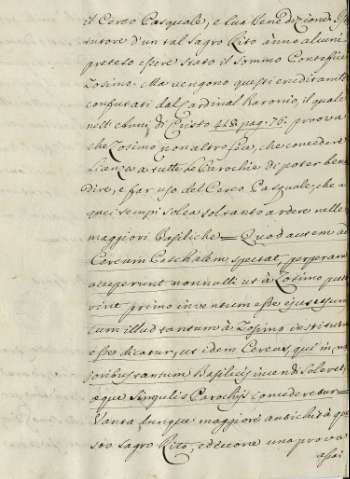 il Cereo Pasquale, e sua benedizione.
tutore d'un tal sagro Rito ànno alcuni
preteso essere stato il Sommo Pontefice
Zosimo. Ma vengono questi eruditamente
confutati dal Cardinal Baronio, il quale
nell' di Cristo 418. pag. 76. prova
che Zosimo non altro fece, che concedere
licenza a tutte le Parochie di poter bene
dire, e far uso del Cereo Pasquale, che a
quei tempi solea soltanto ardere nelle
maggiori Basiliche. Quod autem ad
Cereum Paschalem spectat, perperam
acceperunt nonnulli ut à Zosimo pute
rint primo inventum esse ejus usum
cum illud tantum à Zosimo institutum
esse dicatur, ut idem Cereus, qui in ma
joribus tantum Basilicis incendi soleret,
æque singulis Parochijs concederetur
Vanta dunque maggiore antichità que
sto sagro Rito, ed eccone una prova
assai